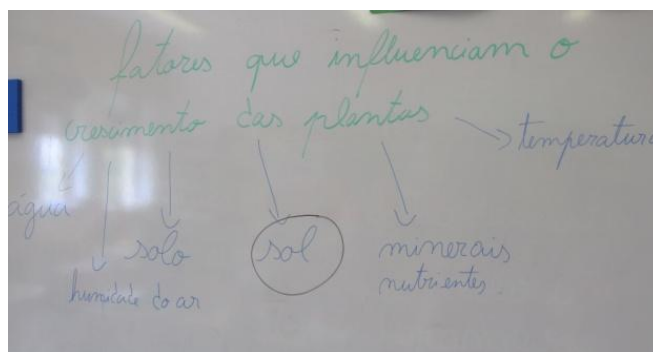 fatores que influenciam o
crescimento das plantas
temperatura
água
solo
sol
minerais
nutrientes.
humidade do ar